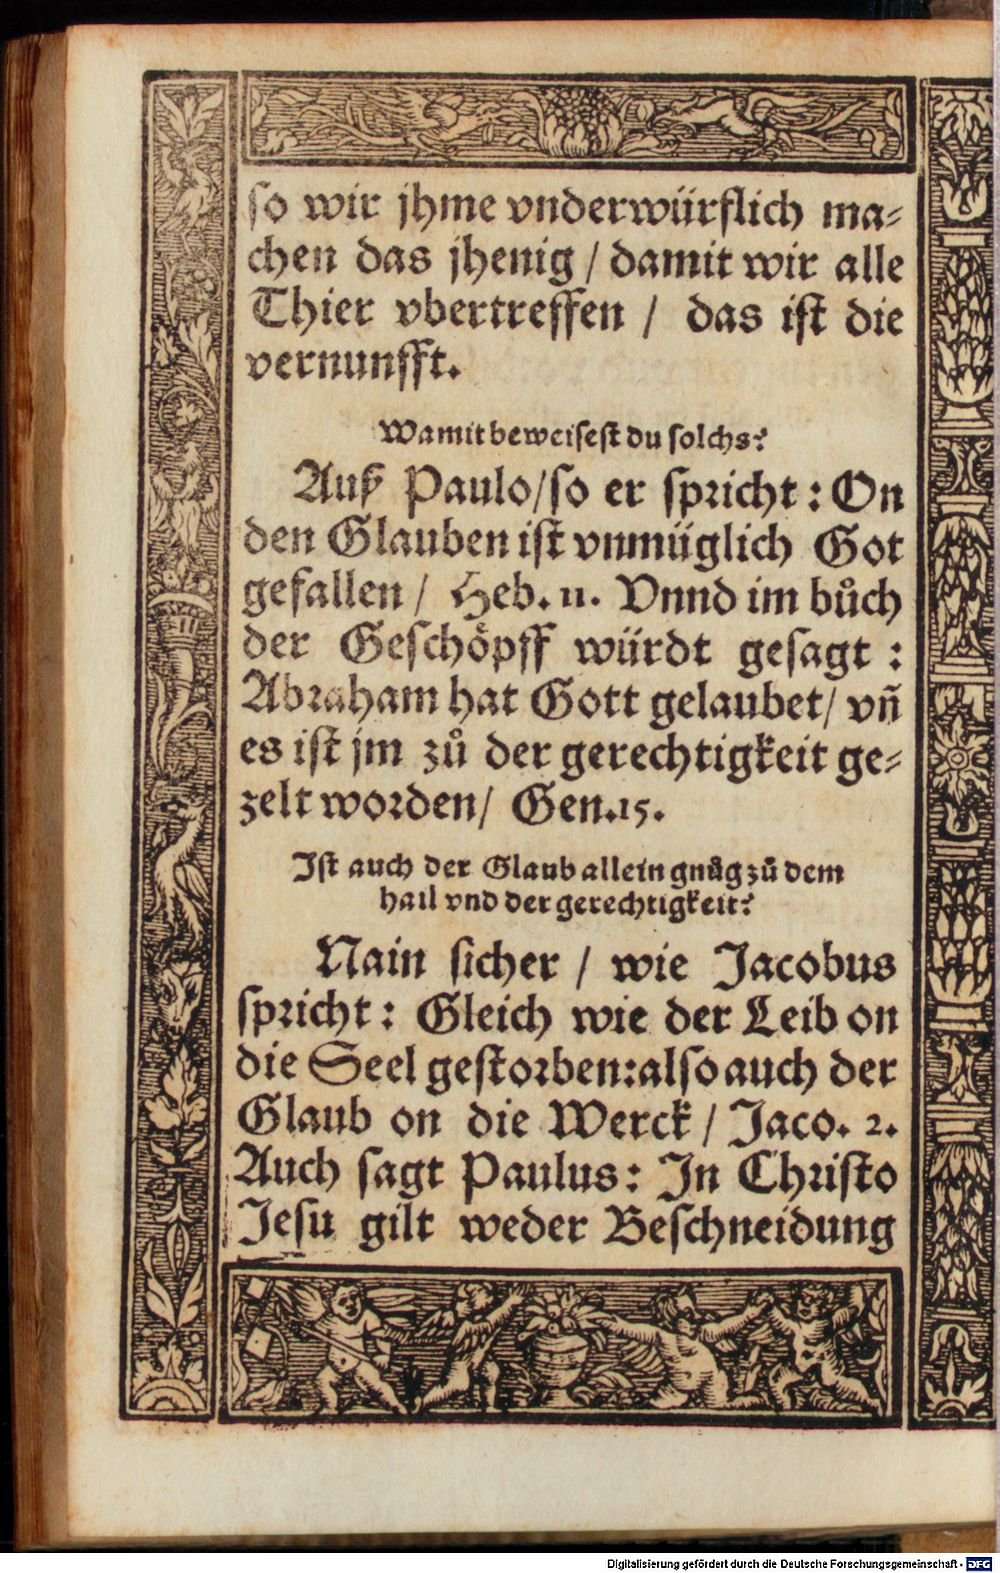 so wir jhme vnderwürflich ma⸗
chen das jhenig / damit wir alle
Thier vbertreffen / das ist die
vernunfft.
Wamit beweisest du solchs?
Auß Paulo/so er spricht : On
den Glauben ist vnmüglich Got
gefallen / Heb. 11. Vnnd im bůch
der Geschöpff würdt gesagt :
Abraham hat Gott gelaubet/ vñ
es ist jm zů der gerechtigkeit ge⸗
zelt worden/ Gen.15.
Ist auch der Glaub allein gnůg zů dem
hail vnd der gerechtigkeit?
Nain sicher / wie Jacobus
spricht : Gleich wie der Leib on
die Seel gestorben:also auch der
Glaub on die Werck / Jaco. 2.
Auch sagt Paulus: In Christo
Jesu gilt weder Beschneidung
Digitalisierung gefördert durch die Deutsche Forschungsgemeinschaft - DFG